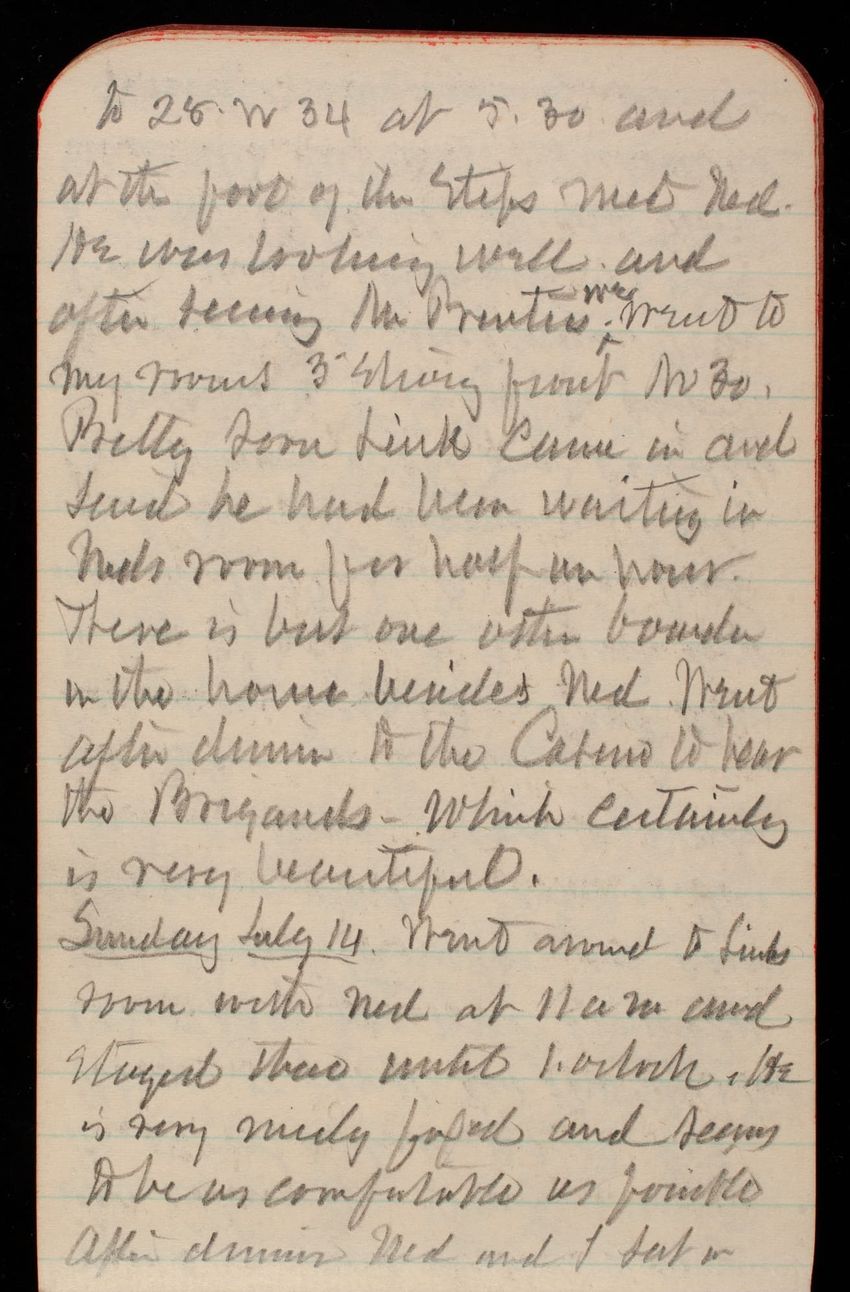 to 28. W 34 at 5.30 and
at the foot of the Steps met Ned.
He was looking well. and
after seeing Mr Prentiss. we went to
my rooms 3d Story front No 30.
Pretty soon Link came in and
said he had been waiting in
Neds room for half an hour.
There is but one other boarder
in the house besides Ned. Went
after dinner to the Casino to hear
the Brigands - Which certainly
is very beautiful.
Sunday July 14. Went around to Links
room with Ned at 11 a m and
stayed there until 1. oclock. He
is very nicely fixed and seems
to be as comfortable as possible
After dinner Ned and I sat in